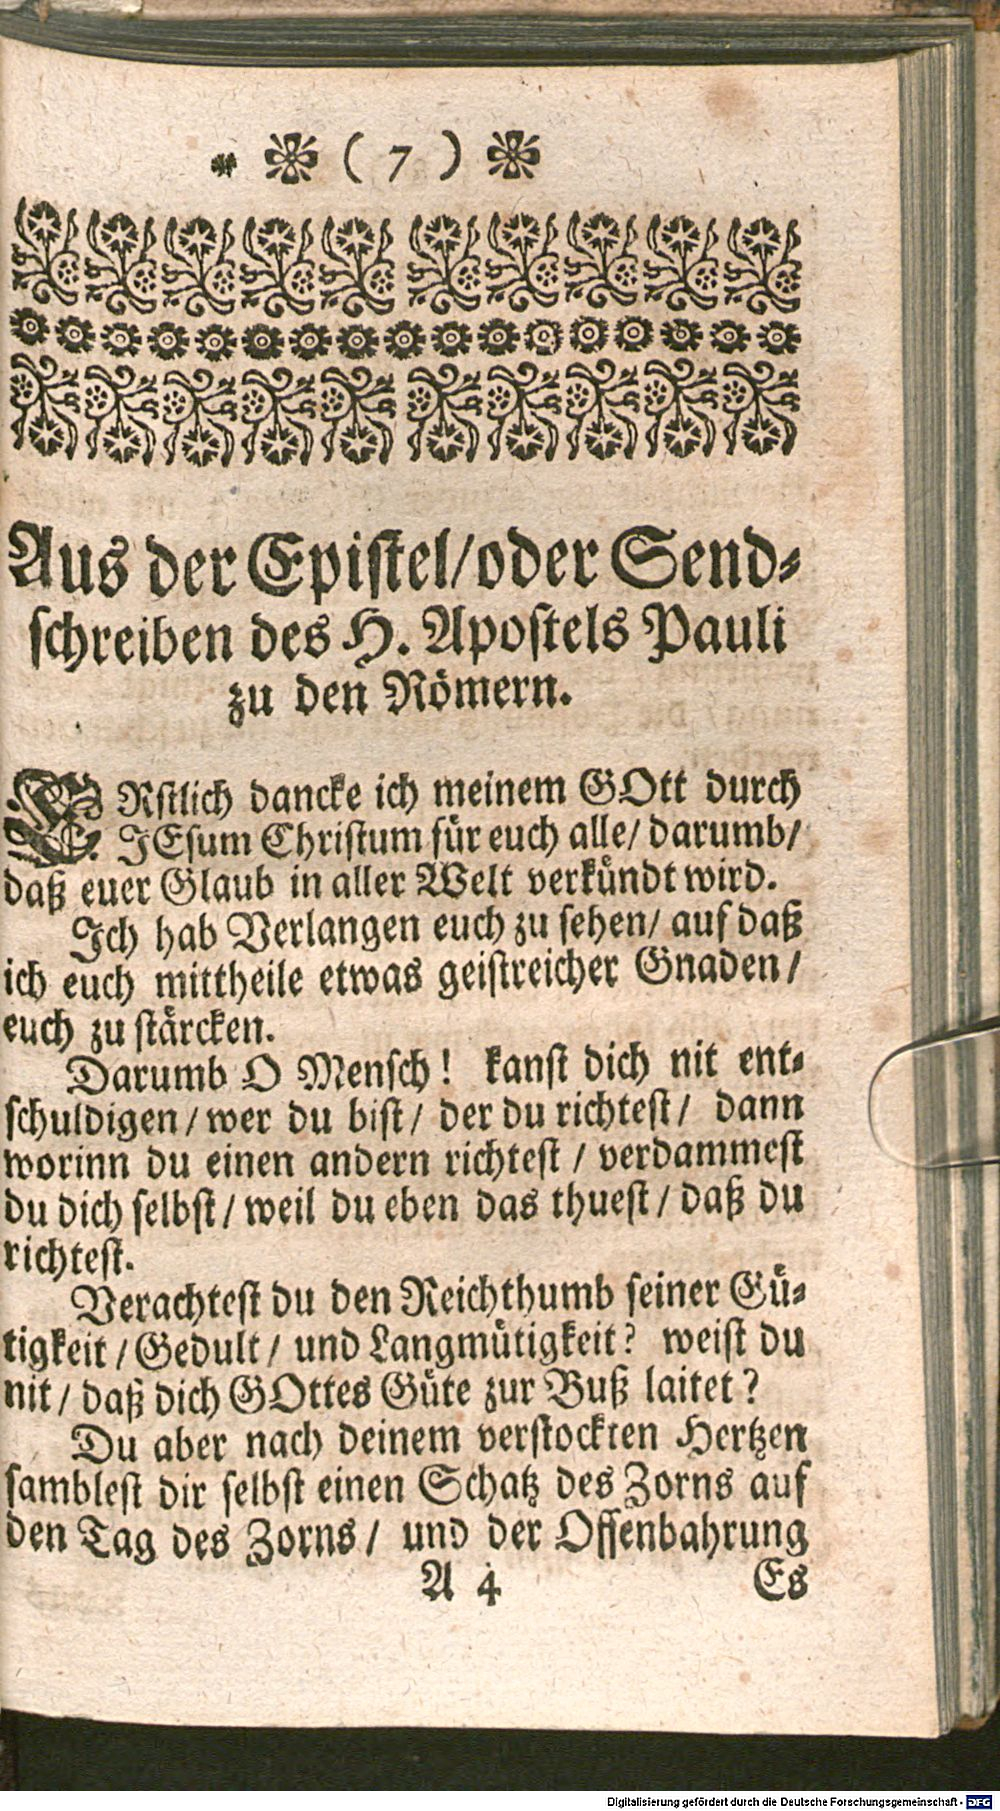 ( 7 )
Aus der Epistel/oder Send-
schreiben des H. Apostels Pauli
zu den Römern.
ERstlich dancke ich meinem GOtt durch
JEsum Christum für euch alle/ darumb/
daß euer Glaub in aller Welt verkündt wird.
Ich hab Verlangen euch zu sehen/ auf daß
ich euch mittheile etwas geistreicher Gnaden/
euch zu stärcken.
Darumb O Mensch! kanst dich nit ent-
schuldigen/ wer du bist/ der du richtest/ dann
worinn du einen andern richtest/ verdammest
du dich selbst/ weil du eben das thuest/ daß du
richtest.
Verachtest du den Reichthumb seiner Gü-
tigkeit/ Gedult/ und Langmütigkeit? weist du
nit/ daß dich GOttes Güte zur Buß laitet?
Du aber nach deinem verstockten Hertzen
samblest dir selbst einen Schatz des Zorns auf
den Tag des Zorns/ und der Offenbahrung
A 4 Es
Digitalisierung gefördert durch die Deutsche Forschungsgemeinschaft - DFG